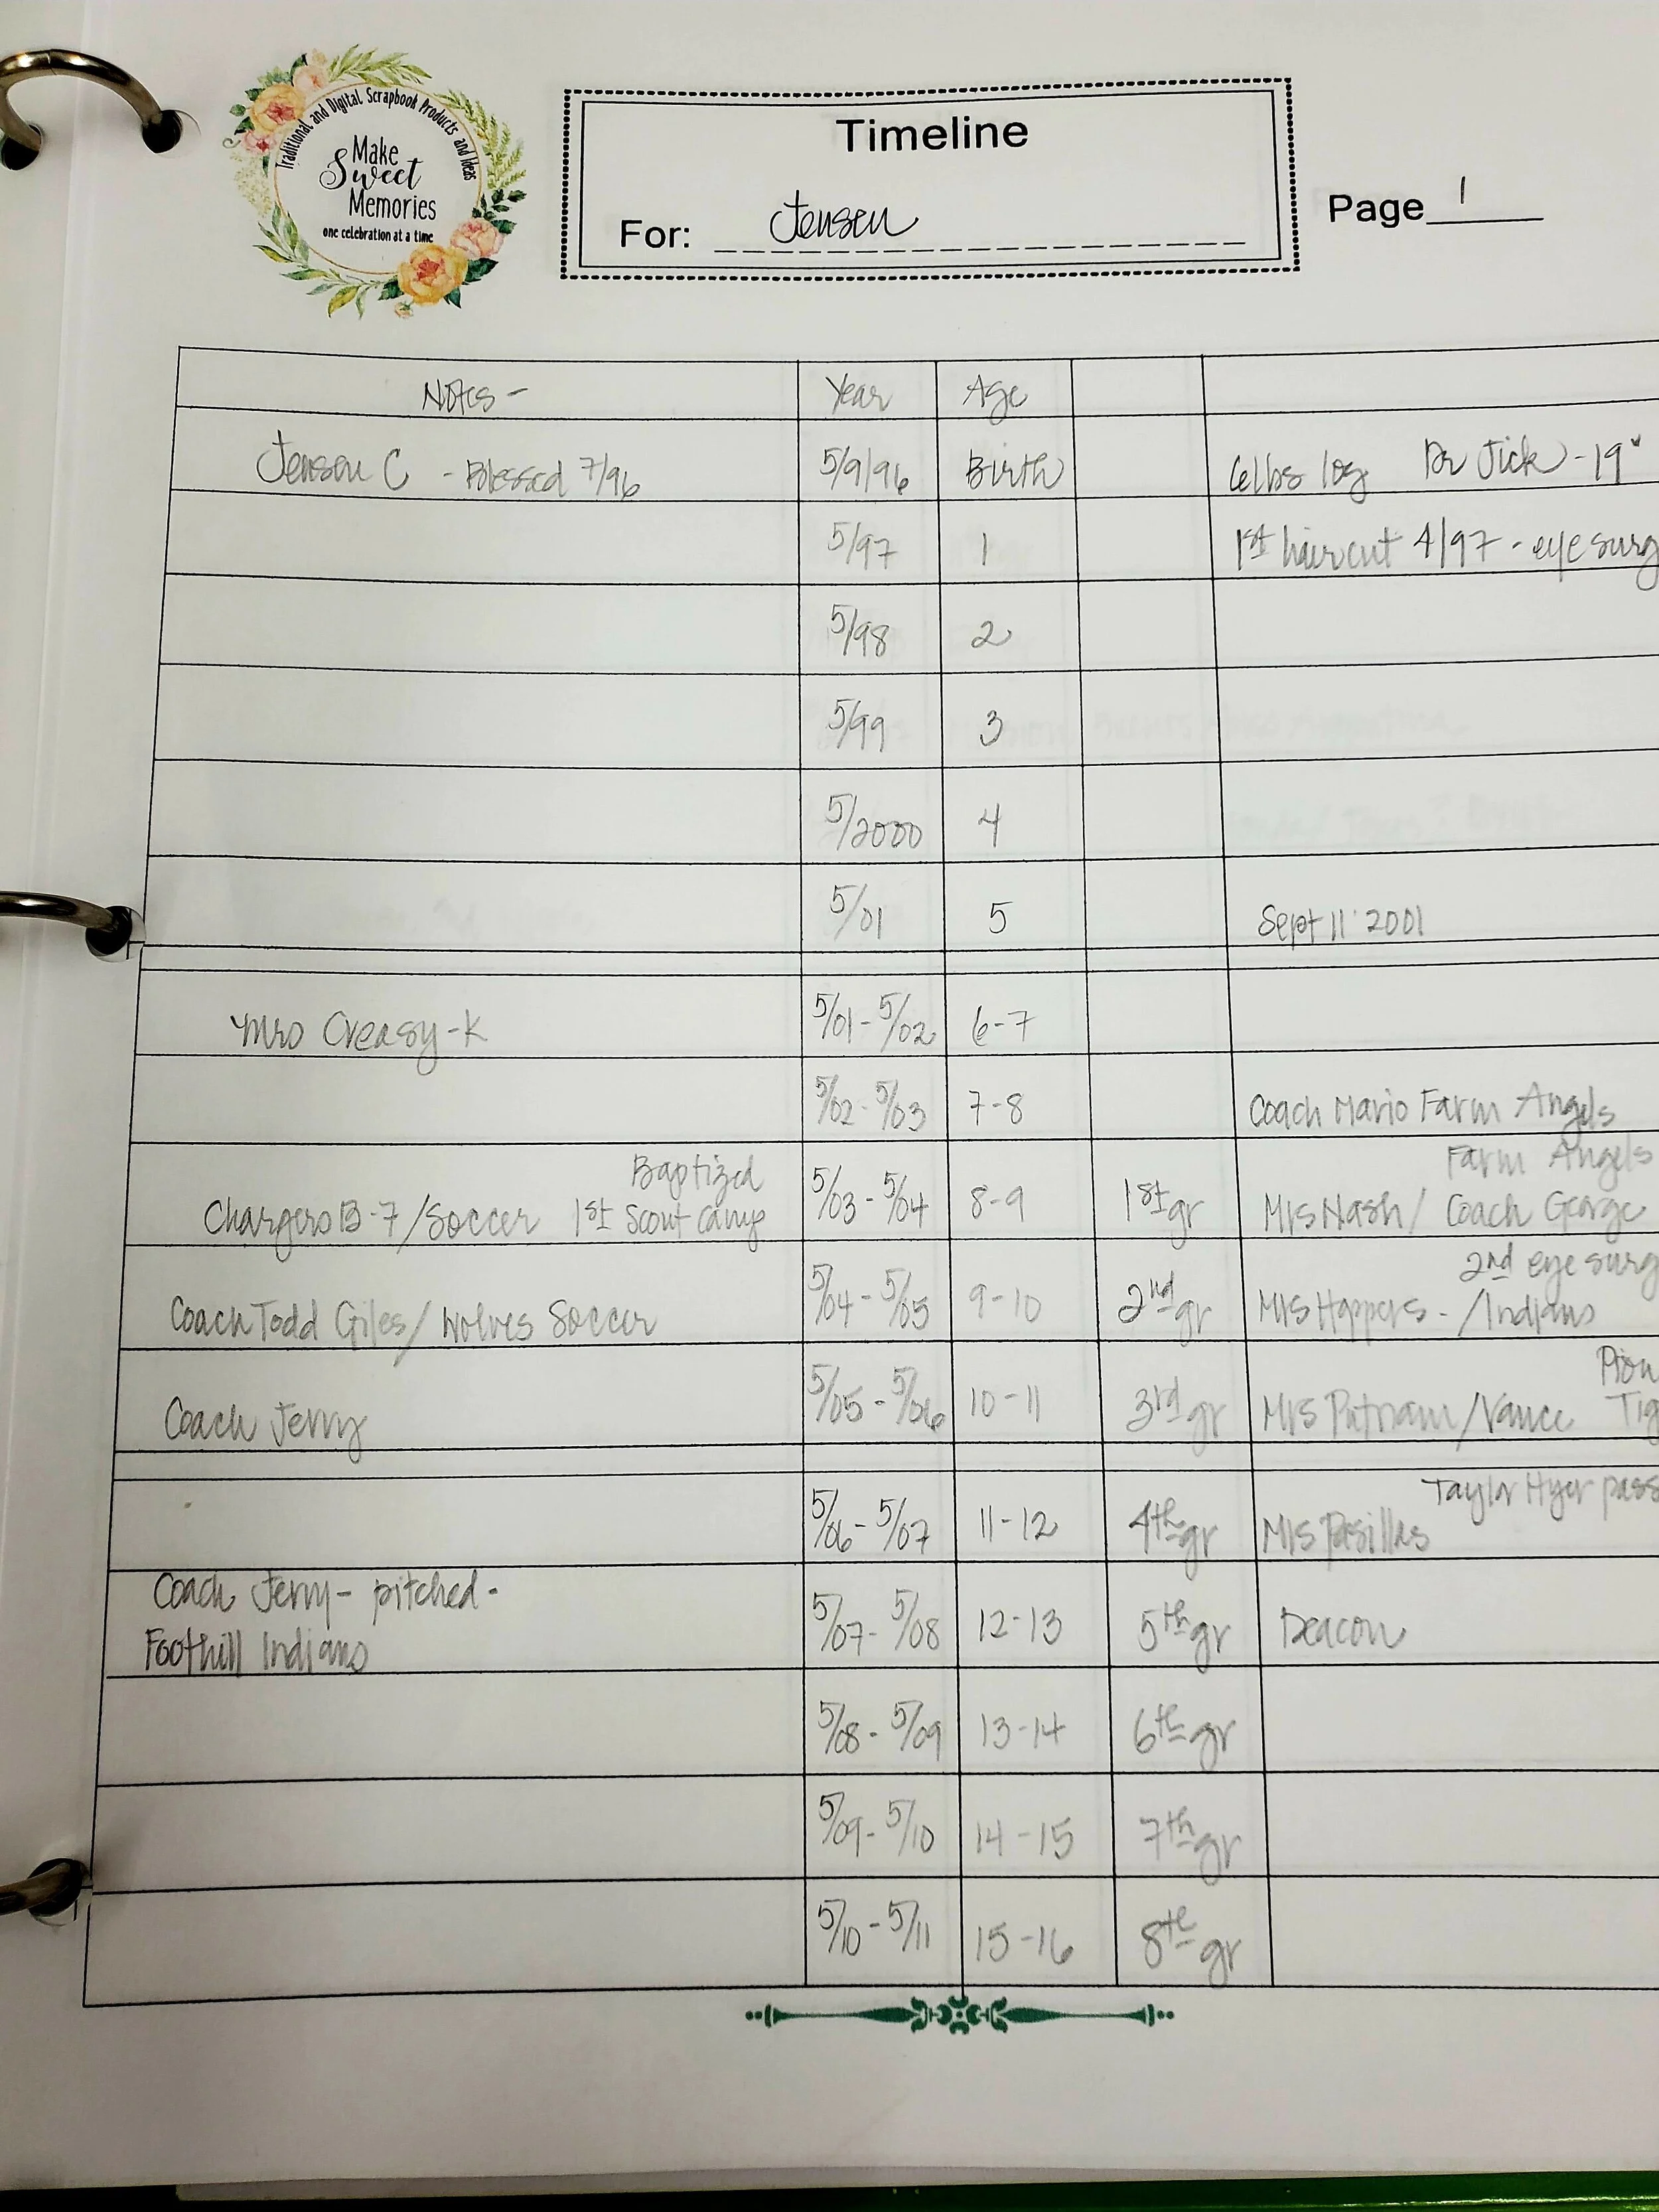 Traditional and Digital Scrapbook Products and Ideas
Make
Sweet
Memories
one celebration at a time
Timeline
For: Jensen
Page 1
Notes - Year Age
Jensen C - Blessed 7/96 5/9/96 Birth 6lbs 10g Dr Jick - 19"
5/97 1 1st haircut 4/97 - eye surg
5/98 2
5/99 3
5/2000 4
5/01 5 Sept 11 2001
Mrs Creasy - K 5/01 - 5/02 6-7
5/02 - 5/03 7-8 Coach Mario Farm Angels
Baptized Farm Angels
Chargers B-7/Soccer 1st Scout Camp 5/03 - 5/04 8-9 1st gr Mrs Nash/ Coach George
2nd eye surg
Coach Todd Giles/ Wolves Soccer 5/04 - 5/05 9-10 2nd gr Mrs Happers - /Indians
Coach Jerry 5/05 - 5/06 10-11 3rd gr Mrs Putnam/Vance
Taylor Hyer pass
5/06 - 5/07 11-12 4th gr Mrs Pasillas
Coach Jerry - pitched -
Foothill Indians 5/07 - 5/08 12-13 5th gr Deacon
5/08 - 5/09 13-14 6th gr
5/09 - 5/10 14-15 7th gr
5/10 - 5/11 15-16 8th gr